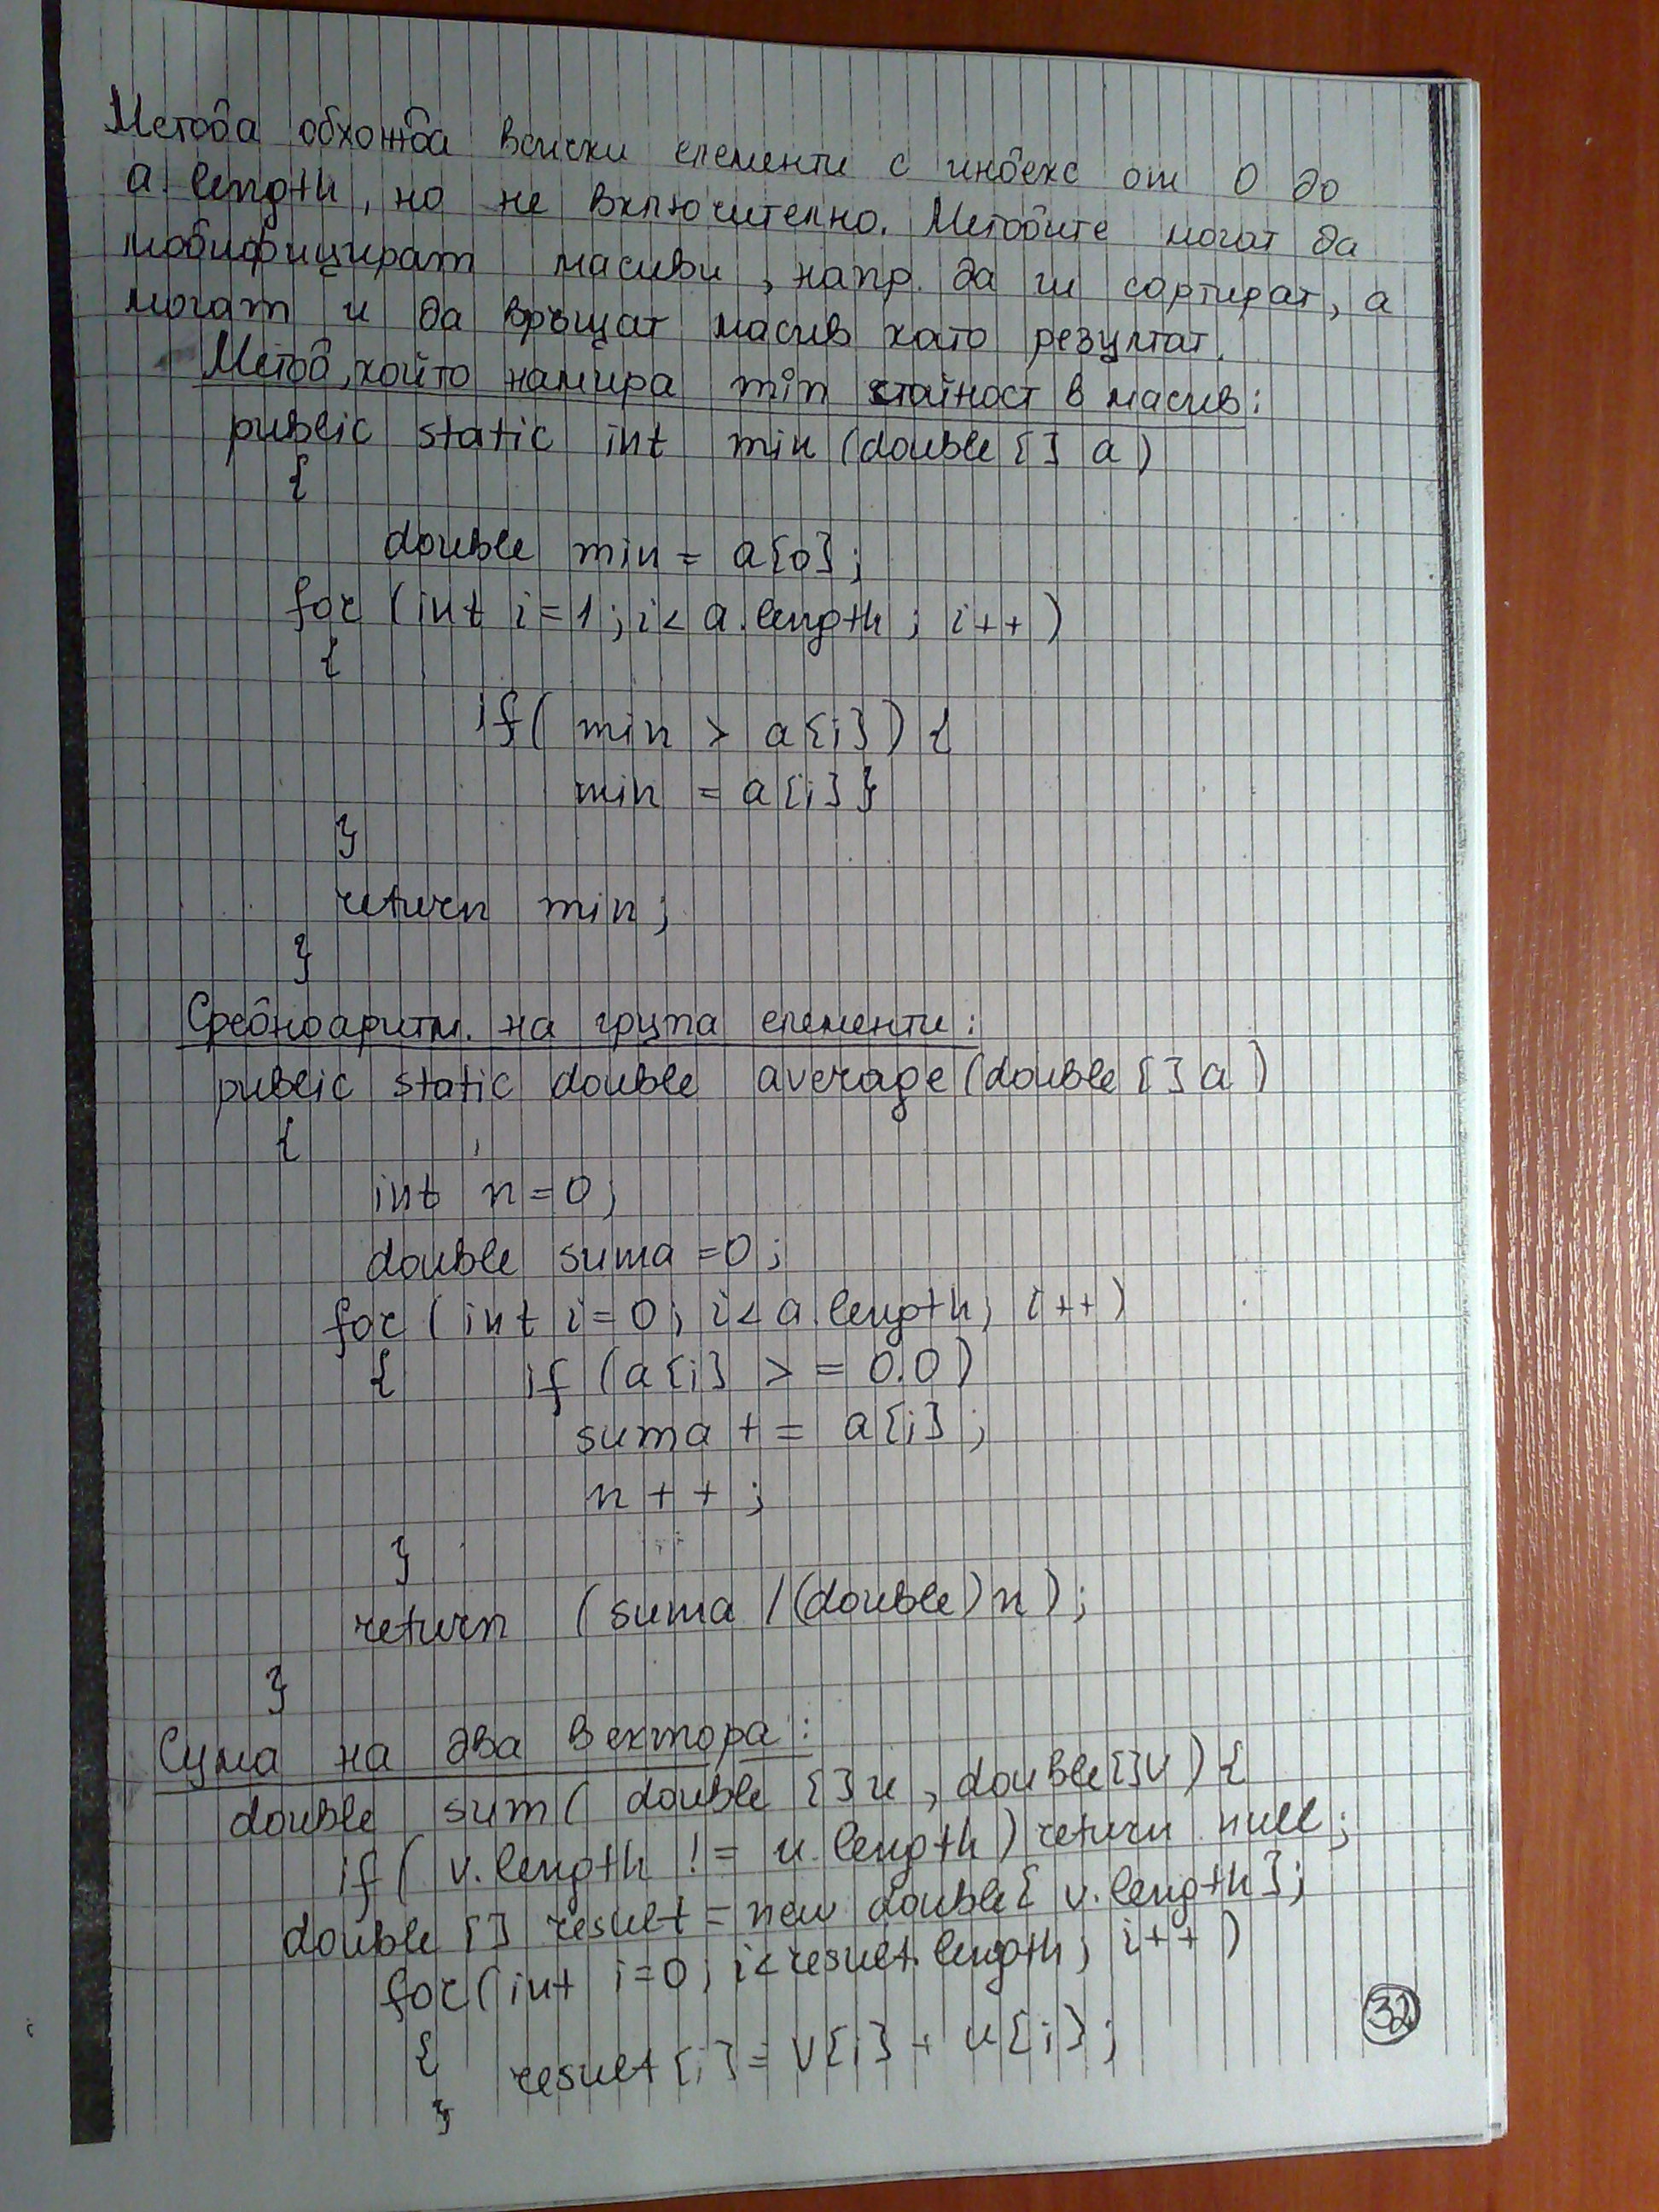 Метода обхожда всички елементи с индекс от 0 до
a.length, но не включително. Методите могат да
модифицират масиви, напр. да ги сортират, а
могат и да връщат масив като резултат.
Метод, който намира min стайност в масив:
public static int min (double [] a)
{
double min = a[0];
for (int i=1; i< a.length; i++)
{
if( min > a[i]) {
min = a[i] }
}
return min;
}
Средноаритм. на група елементи:
public static double average (double [] a)
{
int n=0;
double suma =0;
for (int i=0; i< a.length; i++)
{ if (a[i] >= 0.0)
suma += a[i];
n++;
}
return (suma /(double) n);
}
Сума на два вектора:
double sum( double []u, double[]v) {
if( v.length != u.length) return null;
double [] result = new double[ v.length];
for(int i=0; i<result.length; i++)
{ result[i]= v[i] + u[i];
}
32